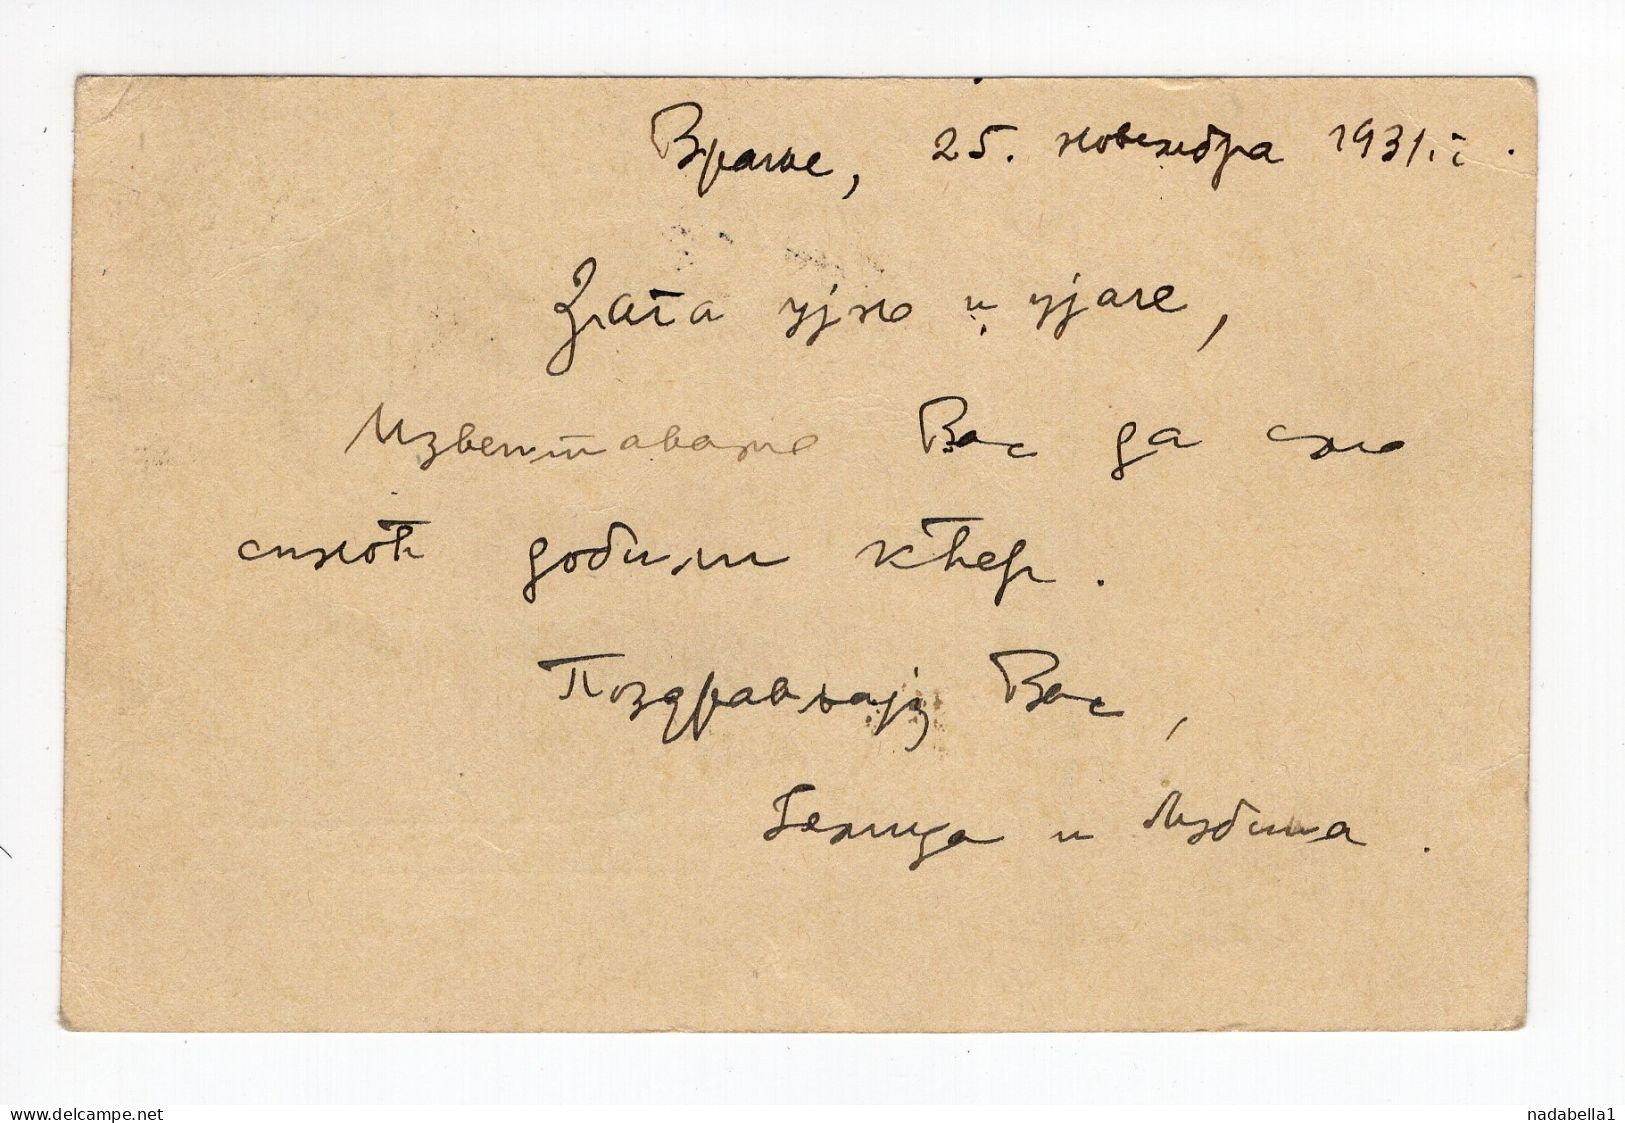 Врање, 25. новембра 1931. г.
Злата ујно и ујаче,
Извештавамо Вас да смо
синоћ добили кћер.
Поздрављају Вас,
и Љубиша.
delcampe.net
nadabella1